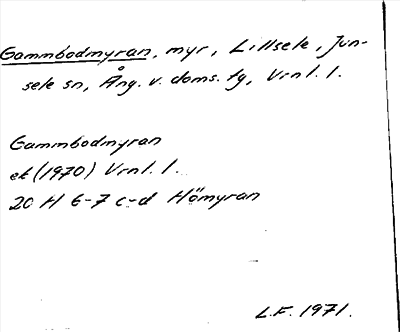 Gammbodmyran, myr, Lillsele, Jun-
sele sn, Ång. v. doms. tg, Vrnl. l.
Gammbodmyran
ek (1970) Vrnl. l.
20 H 6-7 c-d Hömyran
L.F. 1971.